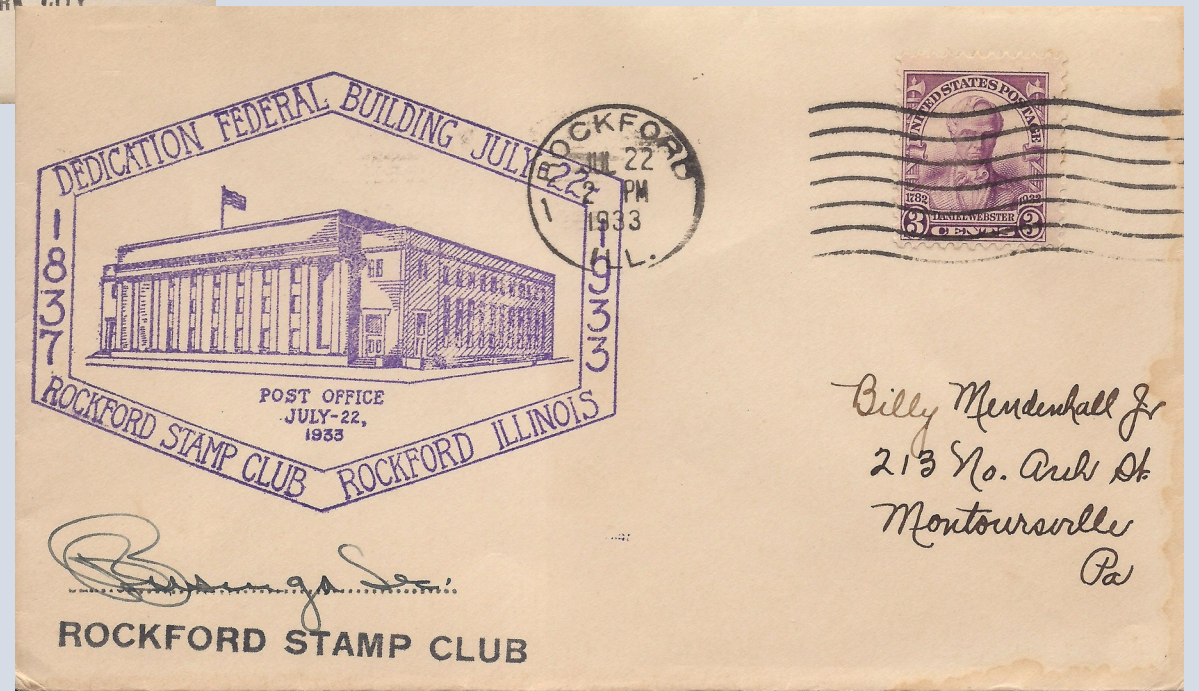 RK CITY
DEDICATION FEDERAL BUILDING JULY 22
1837
1933
POST OFFICE
JULY-22,
1933
ROCKFORD STAMP CLUB ROCKFORD ILLINOIS
ROCKFORD
1
JUL 22
2 PM
1933
ILL.
UNITED STATES POSTAGE
1782 1932
DANIEL WEBSTER
3 CENTS 3
Billy Mendenhall Jr
213 No. Arch St.
Montoursville
Pa
Sec.
ROCKFORD STAMP CLUB